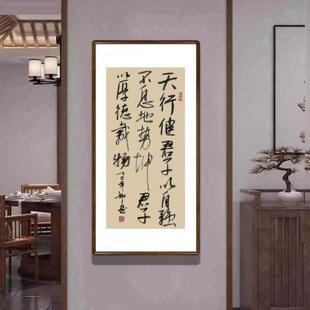 天行健君子以自强
不息地势坤君子
以厚德載物